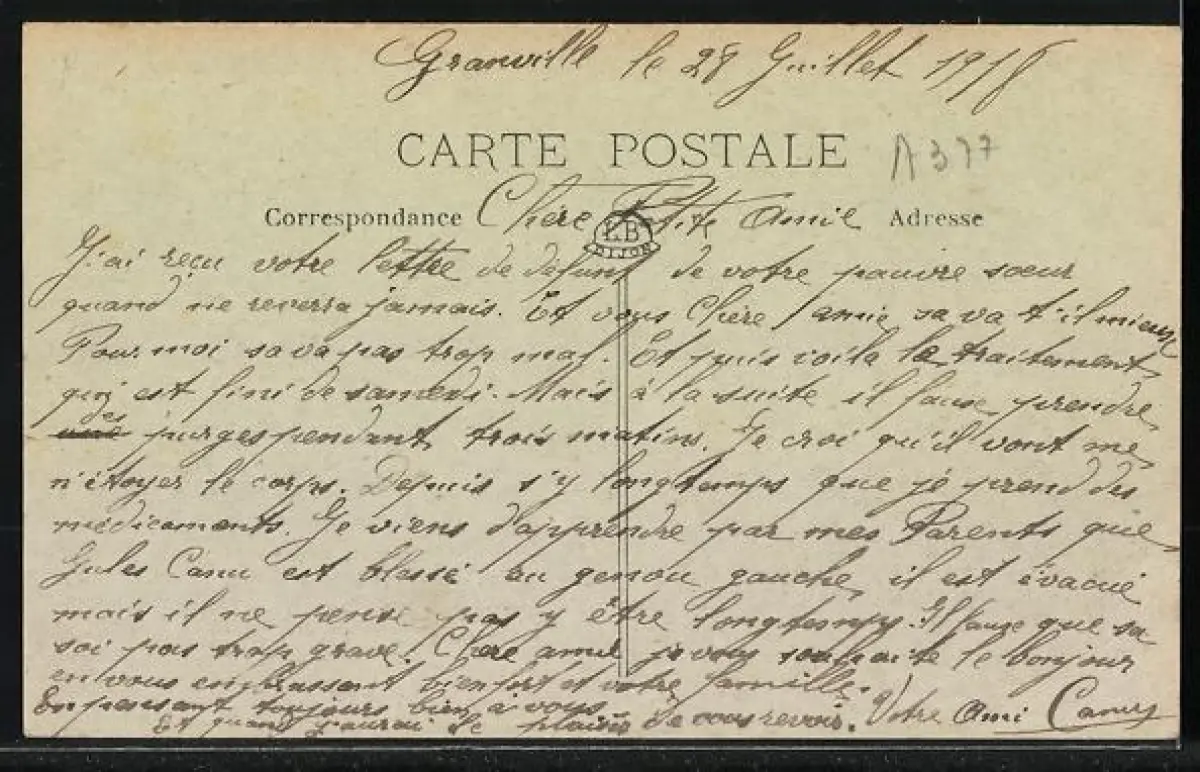 Granville le 28 Juillet 1918
CARTE POSTALE
A 397
Correspondance Chère Petite Amie Adresse
LB
DIJON
J'ai reçu votre lettre de defunt de votre pauvre sœur
quand ne reverra jamais. Et vous Chère amie sa va t'il mieux
Pour moi sa va pas trop mal. Et puis voila le traitement
qui est fini de samedi. Mais à la suite il fause prendre
des
purges pendant trois matins. Je croi qu'il vont me
n'étoyer le corps. Depuis s'y longtemps que jé prend des
médicaments. Je viens d'apprendre par mes Parents que
Jules Canu est blessé au genou gauche, il est évacué
mais il ne pense pas y être longtemps. Il fause que sa
soi pas trop grave. Chère amie je vous souhaite le bonjour
en vous embrassant bien fort et votre famille.
En pensant toujours bien à vous
Et quand j'aurai le plaisir de vous revoir. Votre Ami Canu